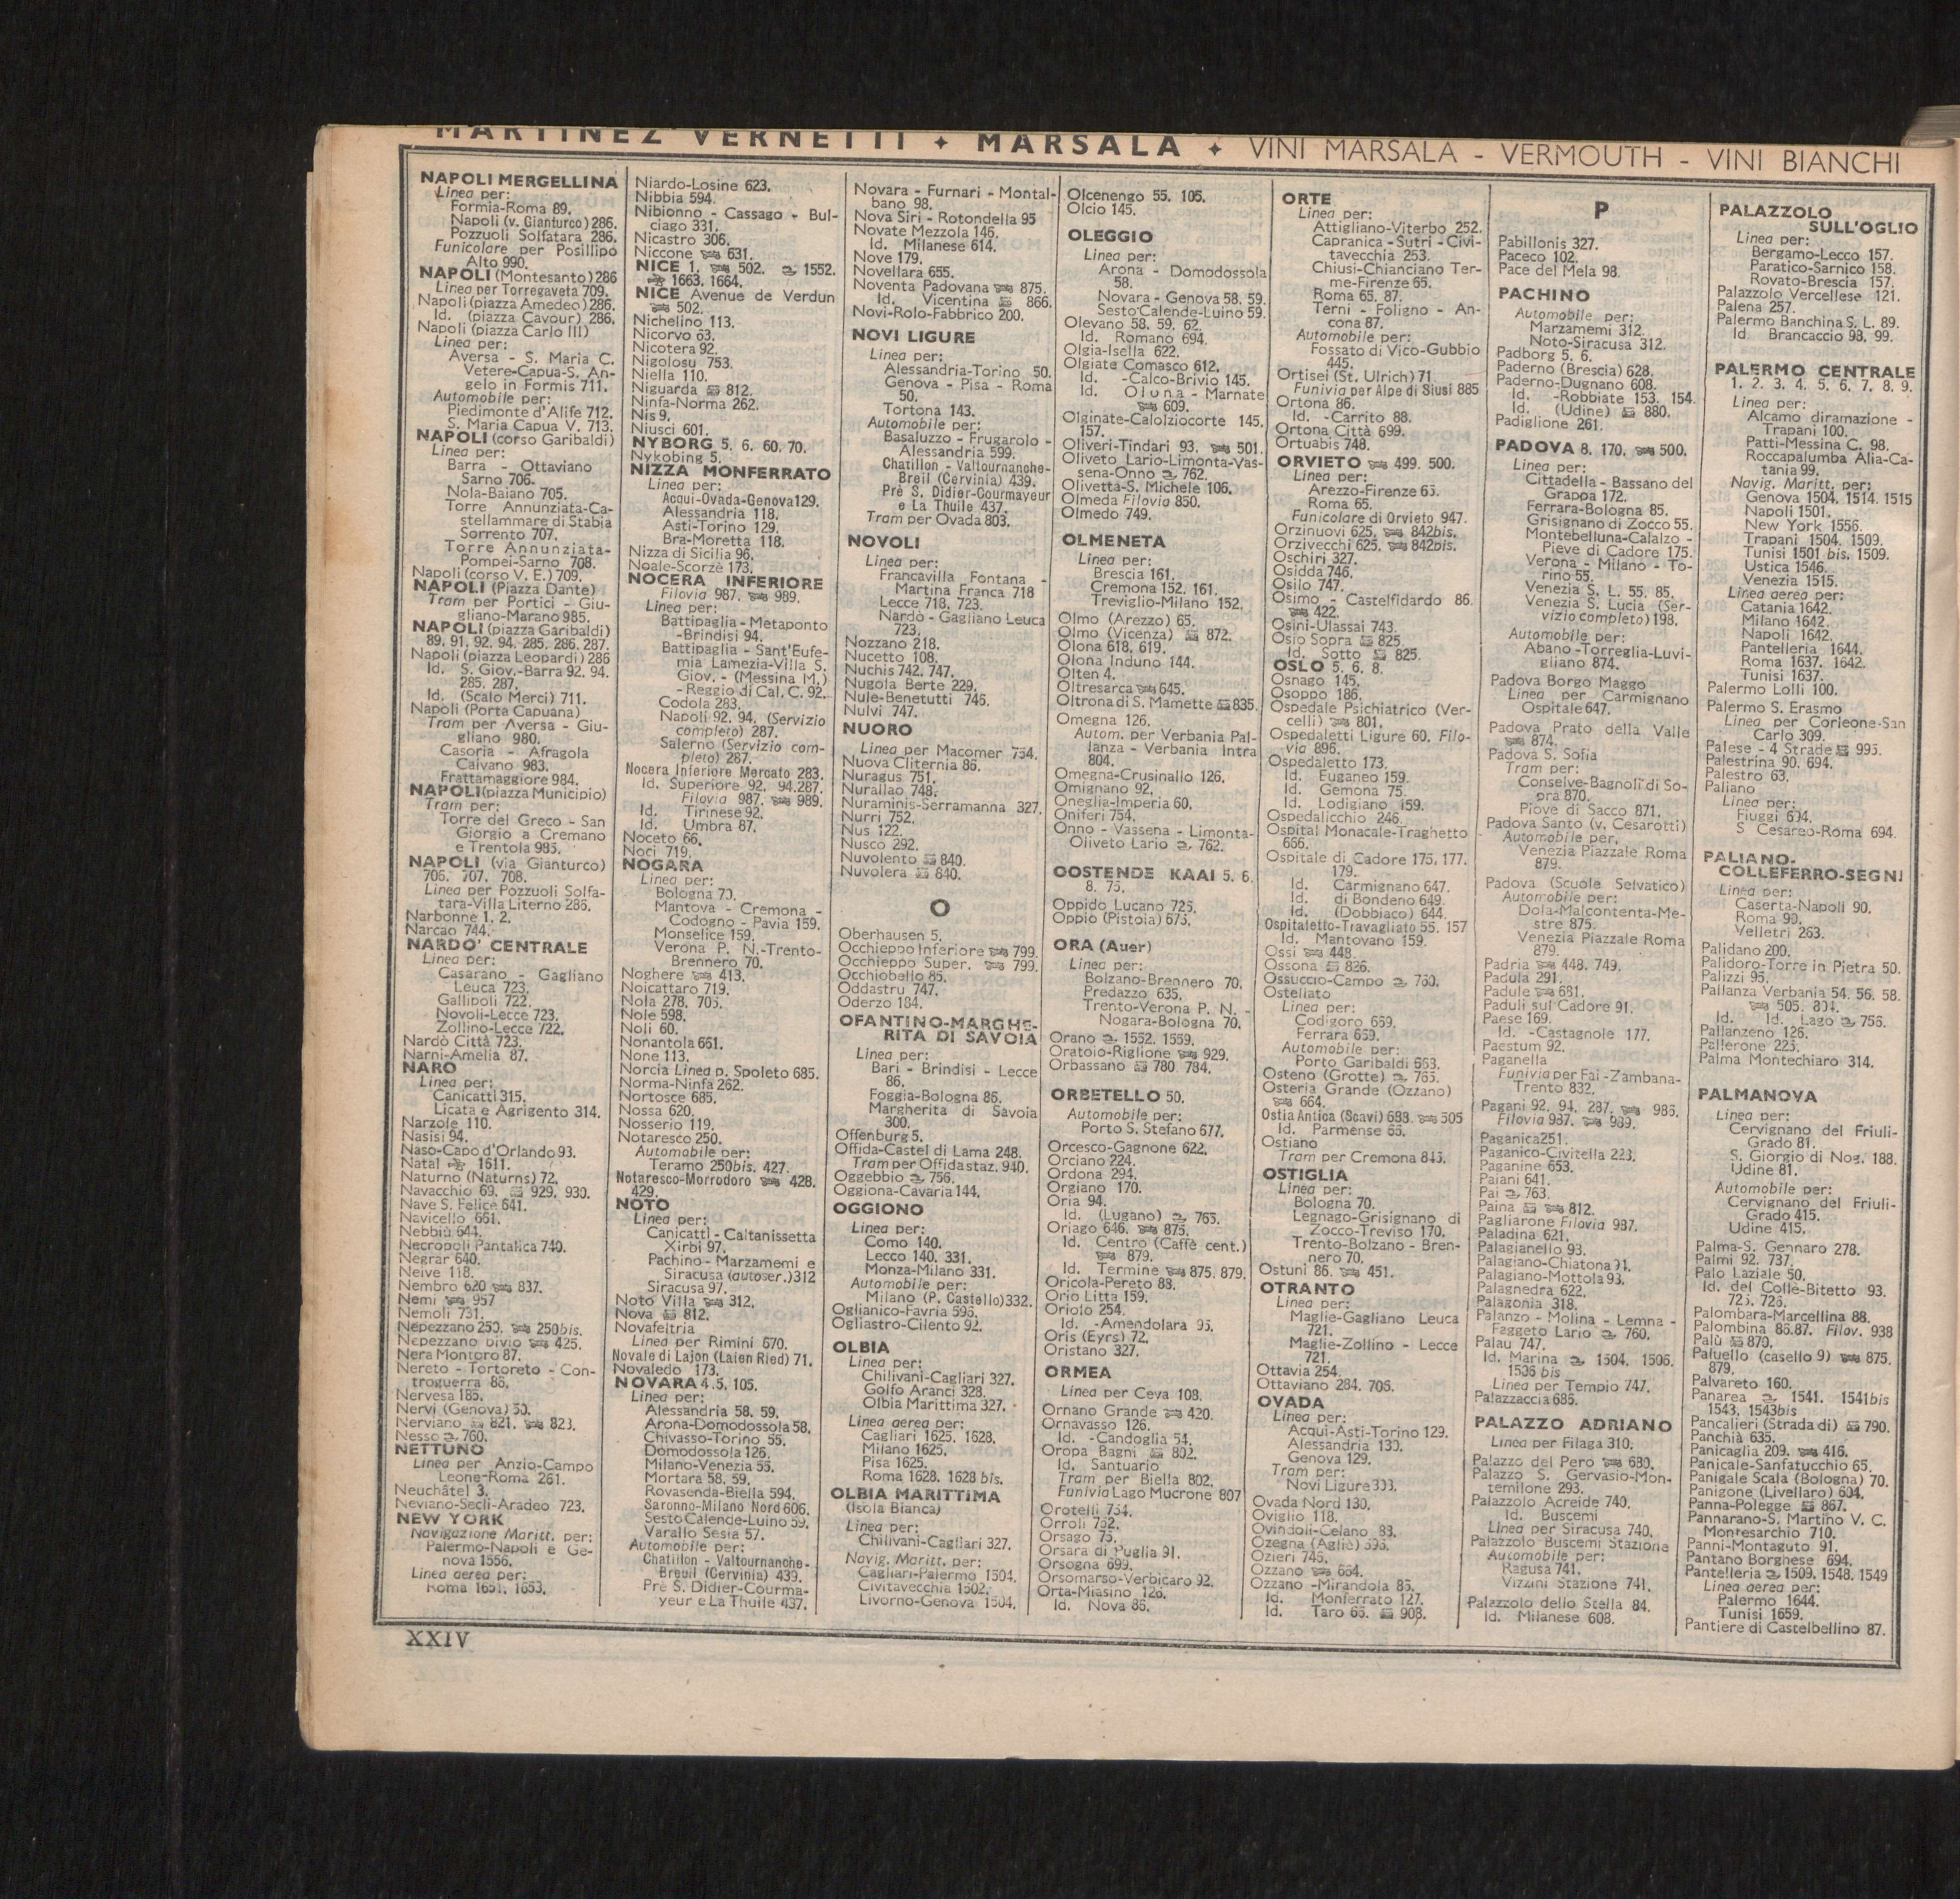 MARTINEZ VERNETTI ✦ MARSALA ✦ VINI MARSALA - VERMOUTH - VINI BIANCHI
NAPOLI MERGELLINA
Linea per:
Formia-Roma 89.
Napoli (v. Gianturco) 286.
Pozzuoli Solfatara 286.
Funicolare per Posillipo
Alto 990.
NAPOLI (Montesanto) 286
Linea per Torregaveta 709.
Napoli (piazza Amedeo) 286.
Id. (piazza Cavour) 286.
Napoli (piazza Carlo III)
Linea per:
Aversa - S. Maria C.
Vetere-Capua-S. An-
gelo in Formis 711.
Automobile per:
Piedimonte d'Alife 712.
S. Maria Capua V. 713.
NAPOLI (corso Garibaldi)
Linea per:
Barra - Ottaviano
Sarno 706.
Nola-Baiano 705.
Torre Annunziata-Ca-
stellammare di Stabia
Sorrento 707.
Torre Annunziata-
Pompei-Sarno 708.
Napoli (corso V. E.) 709.
NAPOLI (Piazza Dante)
Tram per Portici - Giu-
gliano-Marano 985.
NAPOLI (piazza Garibaldi)
89. 91. 92. 94. 285. 286. 287.
Napoli (piazza Leopardi) 286
Id. S. Giov.-Barra 92. 94.
285. 287.
Id. (Scalo Merci) 711.
Napoli (Porta Capuana)
Tram per Aversa - Giu-
gliano 980.
Casoria - Afragola
Caivano 983.
Frattamaggiore 984.
NAPOLI (piazza Municipio)
Tram per:
Torre del Greco - San
Giorgio a Cremano
e Trentola 985.
NAPOLI (via Gianturco)
706. 707. 708.
Linea per Pozzuoli Solfa-
tara-Villa Literno 286.
Narbonne 1. 2.
Narcao 744.
NARDO' CENTRALE
Linea per:
Casarano - Gagliano
Leuca 723.
Gallipoli 722.
Novoli-Lecce 723.
Zollino-Lecce 722.
Nardò Città 723.
Narni-Amelia 87.
NARO
Linea per:
Canicattì 315.
Licata e Agrigento 314.
Narzole 110.
Nasisi 94.
Naso-Capo d'Orlando 93.
Natal 1611.
Naturno (Naturns) 72.
Navacchio 69. 929. 930.
Nave S. Felice 641.
Navicello 661.
Nebbiù 644.
Necropoli Pantalica 740.
Negrar 640.
Neive 118.
Nembro 620 837.
Nemi 957
Nemoli 731.
Nepezzano 250. 250bis.
Nepezzano bivio 425.
Nera Montoro 87.
Nereto - Tortoreto - Con-
troguerra 86.
Nervesa 185.
Nervi (Genova) 50.
Nerviano 821. 823.
Nesso 760.
NETTUNO
Linea per Anzio-Campo
Leone-Roma 261.
Neuchâtel 3.
Neviano-Seclì-Aradeo 723.
NEW YORK
Navigazione Maritt. per:
Palermo-Napoli e Ge-
nova 1556.
Linea aerea per:
Roma 1651. 1653.
Niardo-Losine 623.
Nibbia 594.
Nibionno - Cassago - Bul-
ciago 331.
Nicastro 306.
Niccone 631.
NICE 1. 502. 1552.
1663. 1664.
NICE Avenue de Verdun
502.
Nichelino 113.
Nicorvo 63.
Nicotera 92.
Nigolosu 753.
Niella 110.
Niguarda 812.
Ninfa-Norma 262.
Nis 9.
Niusci 601.
NYBORG 5. 6. 60. 70.
Nykobing 5.
NIZZA MONFERRATO
Linea per:
Acqui-Ovada-Genova 129.
Alessandria 118.
Asti-Torino 129.
Bra-Moretta 118.
Nizza di Sicilia 96.
Noale-Scorzè 173.
NOCERA INFERIORE
Filovia 987. 989.
Linea per:
Battipaglia - Metaponto
-Brindisi 94.
Battipaglia - Sant'Eufe-
mia Lamezia-Villa S.
Giov. - (Messina M.)
-Reggio di Cal. C. 92.
Codola 283.
Napoli 92. 94. (Servizio
completo) 287.
Salerno (Servizio com-
pleto) 287.
Nocera Inferiore Mercato 283.
Id. Superiore 92. 94. 287.
Filovia 987. 989.
Id. Tirinese 92.
Id. Umbra 87.
Noceto 66.
Noci 719.
NOGARA
Linea per:
Bologna 70.
Mantova - Cremona -
Codogno - Pavia 159.
Monselice 159.
Verona P. N.-Trento-
Brennero 70.
Noghere 413.
Noicattaro 719.
Nola 278. 705.
Nole 598.
Noli 60.
Nonantola 661.
None 113.
Norcia Linea p. Spoleto 685.
Norma-Ninfa 262.
Nortosce 685.
Nossa 620.
Nosserio 119.
Notaresco 250.
Automobile per:
Teramo 250bis. 427.
Notaresco-Morrodoro 428.
429.
NOTO
Linea per:
Canicattì - Caltanissetta
Xirbi 97.
Pachino - Marzamemi e
Siracusa (autoser.) 312
Siracusa 97.
Noto Villa 312.
Nova 812.
Novafeltria
Linea per Rimini 670.
Novale di Lajon (Laien Ried) 71.
Novaledo 173.
NOVARA 4. 5. 105.
Linea per:
Alessandria 58. 59.
Arona-Domodossola 58.
Chivasso-Torino 55.
Domodossola 126.
Milano-Venezia 55.
Mortara 58. 59.
Rovasenda-Biella 594.
Saronno-Milano Nord 606.
Sesto Calende-Luino 59.
Varallo Sesia 57.
Automobile per:
Chatillon - Valtournanche-
Breuil (Cervinia) 439.
Prè S. Didier-Courma-
yeur e La Thuile 437.
Novara - Furnari - Montal-
bano 98.
Nova Siri - Rotondella 95
Novate Mezzola 146.
Id. Milanese 614.
Nove 179.
Novellara 655.
Noventa Padovana 875.
Id. Vicentina 866.
Novi-Rolo-Fabbrico 200.
NOVI LIGURE
Linea per:
Alessandria-Torino 50.
Genova - Pisa - Roma
50.
Tortona 143.
Automobile per:
Basaluzzo - Frugarolo -
Alessandria 599.
Chatillon - Valtournanche-
Breil (Cervinia) 439.
Prè S. Didier-Courmayeur
e La Thuile 437.
Tram per Ovada 803.
NOVOLI
Linea per:
Francavilla Fontana -
Martina Franca 718
Lecce 718. 723.
Nardò - Gagliano Leuca
723.
Nozzano 218.
Nucetto 108.
Nuchis 742. 747.
Nugola Berte 229.
Nule-Benetutti 746.
Nulvi 747.
NUORO
Linea per Macomer 754.
Nuova Cliternia 86.
Nuragus 751.
Nurallao 748.
Nuraminis-Serramanna 327.
Nurri 752.
Nus 122.
Nusco 292.
Nuvolento 840.
Nuvolera 840.
O
Oberhausen 5.
Occhieppo Inferiore 799.
Occhieppo Super. 799.
Occhiobello 85.
Oddastru 747.
Oderzo 184.
OFANTINO-MARGHE-
RITA DI SAVOIA
Linea per:
Bari - Brindisi - Lecce
86.
Foggia-Bologna 86.
Margherita di Savoia
300.
Offenburg 5.
Offida-Castel di Lama 248.
Tram per Offida staz. 940.
Oggebbio 756.
Oggiona-Cavaria 144.
OGGIONO
Linea per:
Como 140.
Lecco 140. 331.
Monza-Milano 331.
Automobile per:
Milano (P. Castello) 332.
Oglianico-Favria 596.
Ogliastro-Cilento 92.
OLBIA
Linea per:
Chilivani-Cagliari 327.
Golfo Aranci 328.
Olbia Marittima 327.
Linea aerea per:
Cagliari 1625. 1628.
Milano 1625.
Pisa 1625.
Roma 1628. 1628 bis.
OLBIA MARITTIMA
(Isola Bianca)
Linea per:
Chilivani-Cagliari 327.
Navig. Maritt. per:
Cagliari-Palermo 1504.
Civitavecchia 1502.
Livorno-Genova 1504.
Olcenengo 55. 105.
Olcio 145.
OLEGGIO
Linea per:
Arona - Domodossola
58.
Novara - Genova 58. 59.
Sesto Calende-Luino 59.
Olevano 58. 59. 62.
Id. Romano 694.
Olgia-Isella 622.
Olgiate Comasco 612.
Id. -Calco-Brivio 145.
Id. Olona - Marnate
609.
Olginate-Calolziocorte 145.
157.
Oliveri-Tindari 93. 501.
Oliveto Lario-Limonta-Vas-
sena-Onno 762.
Olivetta-S. Michele 106.
Olmeda Filovia 850.
Olmedo 749.
OLMENETA
Linea per:
Brescia 161.
Cremona 152. 161.
Treviglio-Milano 152.
Olmo (Arezzo) 65.
Olmo (Vicenza) 872.
Olona 618. 619.
Olona Induno 144.
Olten 4.
Oltresarca 645.
Oltrona di S. Mamette 835.
Omegna 126.
Autom. per Verbania Pal-
lanza - Verbania Intra
804.
Omegna-Crusinallo 126.
Omignano 92.
Oneglia-Imperia 60.
Oniferi 754.
Onno - Vassena - Limonta-
Oliveto Lario 762.
OOSTENDE KAAI 5. 6.
8. 75.
Oppido Lucano 725.
Oppio (Pistoia) 675.
ORA (Auer)
Linea per:
Bolzano-Brennero 70.
Predazzo 635.
Trento-Verona P. N. -
Nogara-Bologna 70.
Orano 1552. 1559.
Oratoio-Riglione 929.
Orbassano 780. 784.
ORBETELLO 50.
Automobile per:
Porto S. Stefano 677.
Orcesco-Gagnone 622.
Orciano 224.
Ordona 294.
Orgiano 170.
Oria 94.
Id. (Lugano) 765.
Oriago 646. 875.
Id. Centro (Caffè cent.)
879.
Id. Termine 875. 879.
Oricola-Pereto 88.
Orio Litta 159.
Oriolo 254.
Id. -Amendolara 95.
Oris (Eyrs) 72.
Oristano 327.
ORMEA
Linea per Ceva 108.
Ornano Grande 420.
Ornavasso 126.
Id. -Candoglia 54.
Oropa Bagni 802.
Id. Santuario
Tram per Biella 802.
Funivia Lago Mucrone 807
Orotelli 754.
Orroli 752.
Orsago 75.
Orsara di Puglia 91.
Orsogna 699.
Orsomarso-Verbicaro 92.
Orta-Miasino 126.
Id. Nova 86.
ORTE
Linea per:
Attigliano-Viterbo 252.
Capranica - Sutri - Civi-
tavecchia 253.
Chiusi-Chianciano Ter-
me-Firenze 65.
Roma 65. 87.
Terni - Foligno - An-
cona 87.
Automobile per:
Fossato di Vico-Gubbio
445.
Ortisei (St. Ulrich) 71
Funivia per Alpe di Siusi 885
Ortona 86.
Id. -Carrito 88.
Ortona Città 699.
Ortuabis 748.
ORVIETO 499. 500.
Linea per:
Arezzo-Firenze 65.
Roma 65.
Funicolare di Orvieto 947.
Orzinuovi 625. 842bis.
Orzivecchi 625. 842bis.
Oschiri 327.
Osidda 746.
Osilo 747.
Osimo - Castelfidardo 86.
422.
Osini-Ulassai 743.
Osio Sopra 825.
Id. Sotto 825.
OSLO 5. 6. 8.
Osnago 145.
Osoppo 186.
Ospedale Psichiatrico (Ver-
celli) 801.
Ospedaletti Ligure 60. Filo-
via 896.
Ospedaletto 173.
Id. Euganeo 159.
Id. Gemona 75.
Id. Lodigiano 159.
Ospedalicchio 246.
Ospital Monacale-Traghetto
666.
Ospitale di Cadore 175. 177.
179.
Id. Carmignano 647.
Id. di Bondeno 649.
Id. (Dobbiaco) 644.
Ospitaletto-Travagliato 55. 157
Id. Mantovano 159.
Ossi 448.
Ossona 826.
Ossuccio-Campo 760.
Ostellato
Linea per:
Codigoro 669.
Ferrara 669.
Automobile per:
Porto Garibaldi 663.
Osteno (Grotte) 765.
Osteria Grande (Ozzano)
664.
Ostia Antica (Scavi) 688. 505
Id. Parmense 66.
Ostiano
Tram per Cremona 845.
OSTIGLIA
Linea per:
Bologna 70.
Legnago-Grisignano di
Zocco-Treviso 170.
Trento-Bolzano - Bren-
nero 70.
Ostuni 86. 451.
OTRANTO
Linea per:
Maglie-Gagliano Leuca
721.
Maglie-Zollino - Lecce
721.
Ottavia 254.
Ottaviano 284. 706.
OVADA
Linea per:
Acqui-Asti-Torino 129.
Alessandria 130.
Genova 129.
Tram per:
Novi Ligure 803.
Ovada Nord 130.
Oviglio 118.
Ovindoli-Celano 88.
Ozegna (Agliè) 596.
Ozieri 745.
Ozzano 664.
Ozzano -Mirandola 85.
Id. Monferrato 127.
Id. Taro 66. 908.
P
Pabillonis 327.
Paceco 102.
Pace del Mela 98.
PACHINO
Automobile per:
Marzamemi 312.
Noto-Siracusa 312.
Padborg 5. 6.
Paderno (Brescia) 628.
Paderno-Dugnano 608.
Id. -Robbiate 153. 154.
Id. (Udine) 880.
Padiglione 261.
PADOVA 8. 170. 500.
Linea per:
Cittadella - Bassano del
Grappa 172.
Ferrara-Bologna 85.
Grisignano di Zocco 55.
Montebelluna-Calalzo -
Pieve di Cadore 175.
Verona - Milano - To-
rino 55.
Venezia S. L. 55. 85.
Venezia S. Lucia (Ser-
vizio completo) 198.
Automobile per:
Abano -Torreglia-Luvi-
gliano 874.
Padova Borgo Maggo
Linea per Carmignano
Ospitale 647.
Padova Prato della Valle
874.
Padova S. Sofia
Tram per:
Conselve-Bagnoli di So-
pra 870.
Piove di Sacco 871.
Padova Santo (v. Cesarotti)
Automobile per.
Venezia Piazzale Roma
879.
Padova (Scuole Selvatico)
Automobile per:
Dola-Malcontenta-Me-
stre 875.
Venezia Piazzale Roma
879.
Padria 448. 749.
Padula 291.
Padule 681.
Paduli sul Cadore 91.
Paese 169.
Id. -Castagnole 177.
Paestum 92.
Paganella
Funivia per Fai -Zambana-
Trento 832.
Pagani 92. 94. 287. 986.
Filovia 987. 989.
Paganica 251.
Paganico-Civitella 223.
Paganine 653.
Paiani 641.
Pai 763.
Paina 812.
Pagliarone Filovia 987.
Paladina 621.
Palagianello 93.
Palagiano-Chiatona 91.
Palagiano-Mottola 93.
Palagnedra 622.
Palagonia 318.
Palanzo - Molina - Lemna -
Faggeto Lario 760.
Palau 747.
Id. Marina 1504. 1506.
1506 bis
Linea per Tempio 747.
Palazzaccia 685.
PALAZZO ADRIANO
Linea per Filaga 310.
Palazzo del Pero 680.
Palazzo S. Gervasio-Mon-
temilone 293.
Palazzolo Acreide 740.
Id. Buscemi
Linea per Siracusa 740.
Palazzolo Buscemi Stazione
Automobile per:
Ragusa 741.
Vizzini Stazione 741.
Palazzolo dello Stella 84.
Id. Milanese 608.
PALAZZOLO
SULL'OGLIO
Linea per:
Bergamo-Lecco 157.
Paratico-Sarnico 158.
Rovato-Brescia 157.
Palazzolo Vercellese 121.
Palena 257.
Palermo Banchina S. L. 89.
Id Brancaccio 98. 99.
PALERMO CENTRALE
1. 2. 3. 4. 5. 6. 7. 8. 9.
Linea per:
Alcamo diramazione -
Trapani 100.
Patti-Messina C. 98.
Roccapalumba Alia-Ca-
tania 99.
Navig. Maritt. per:
Genova 1504. 1514. 1515
Napoli 1501.
New York 1556.
Trapani 1504. 1509.
Tunisi 1501 bis. 1509.
Ustica 1546.
Venezia 1515.
Linea aerea per:
Catania 1642.
Milano 1642.
Napoli 1642.
Pantelleria 1644.
Roma 1637. 1642.
Tunisi 1637.
Palermo Lolli 100.
Palermo S. Erasmo
Linea per Corleone-San
Carlo 309.
Palese - 4 Strade 995.
Palestrina 90. 694.
Palestro 63.
Paliano
Linea per:
Fiuggi 694.
S Cesareo-Roma 694.
PALIANO-
COLLEFERRO-SEGNI
Linea per:
Caserta-Napoli 90.
Roma 90.
Velletri 263.
Palidano 200.
Palidoro-Torre in Pietra 50.
Palizzi 95.
Pallanza Verbania 54. 56. 58.
505. 804.
Id. Id. Lago 756.
Pallanzeno 126.
Pallerone 225.
Palma Montechiaro 314.
PALMANOVA
Linea per:
Cervignano del Friuli-
Grado 81.
S. Giorgio di Nog. 188.
Udine 81.
Automobile per:
Cervignano del Friuli-
Grado 415.
Udine 415.
Palma-S. Gennaro 278.
Palmi 92. 737.
Palo Laziale 50.
Id. del Colle-Bitetto 93.
725. 726.
Palombara-Marcellina 88.
Palombina 86.87. Filov. 938
Palù 879.
Paluello (casello 9) 875.
879.
Palvareto 160.
Panarea 1541. 1541bis
1543. 1543bis
Pancalieri (Strada di) 790.
Panchià 635.
Panicaglia 209. 416.
Panicale-Sanfatucchio 65.
Panigale Scala (Bologna) 70.
Panigone (Livellaro) 604.
Panna-Polegge 867.
Pannarano-S. Martino V. C.
Montesarchio 710.
Panni-Montaguto 91.
Pantano Borghese 694.
Pantelleria 1509. 1548. 1549
Linea aerea per:
Palermo 1644.
Tunisi 1659.
Pantiere di Castelbellino 87.
XXIV